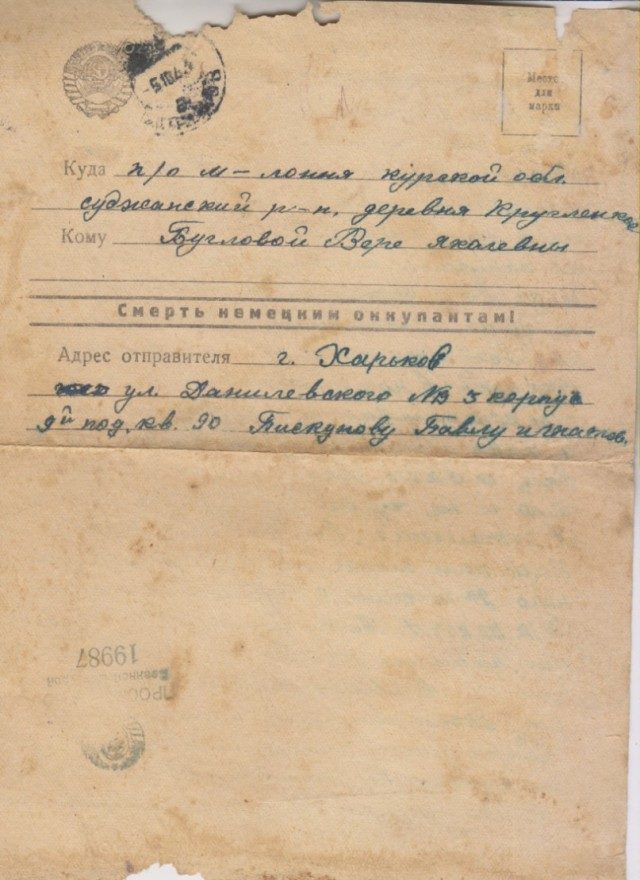 Место
для
марки
Куда п/о м-локня Курской обл.
суджанский р-н, деревня Кругленкое
Кому Бугловой Вере
Смерть немецким оккупантам!
Адрес отправителя г. Харьков
ул. Данилевского № 3 корпус
9й под. кв. 90 Пискунову Павлу
19987
Военной
ПРОС